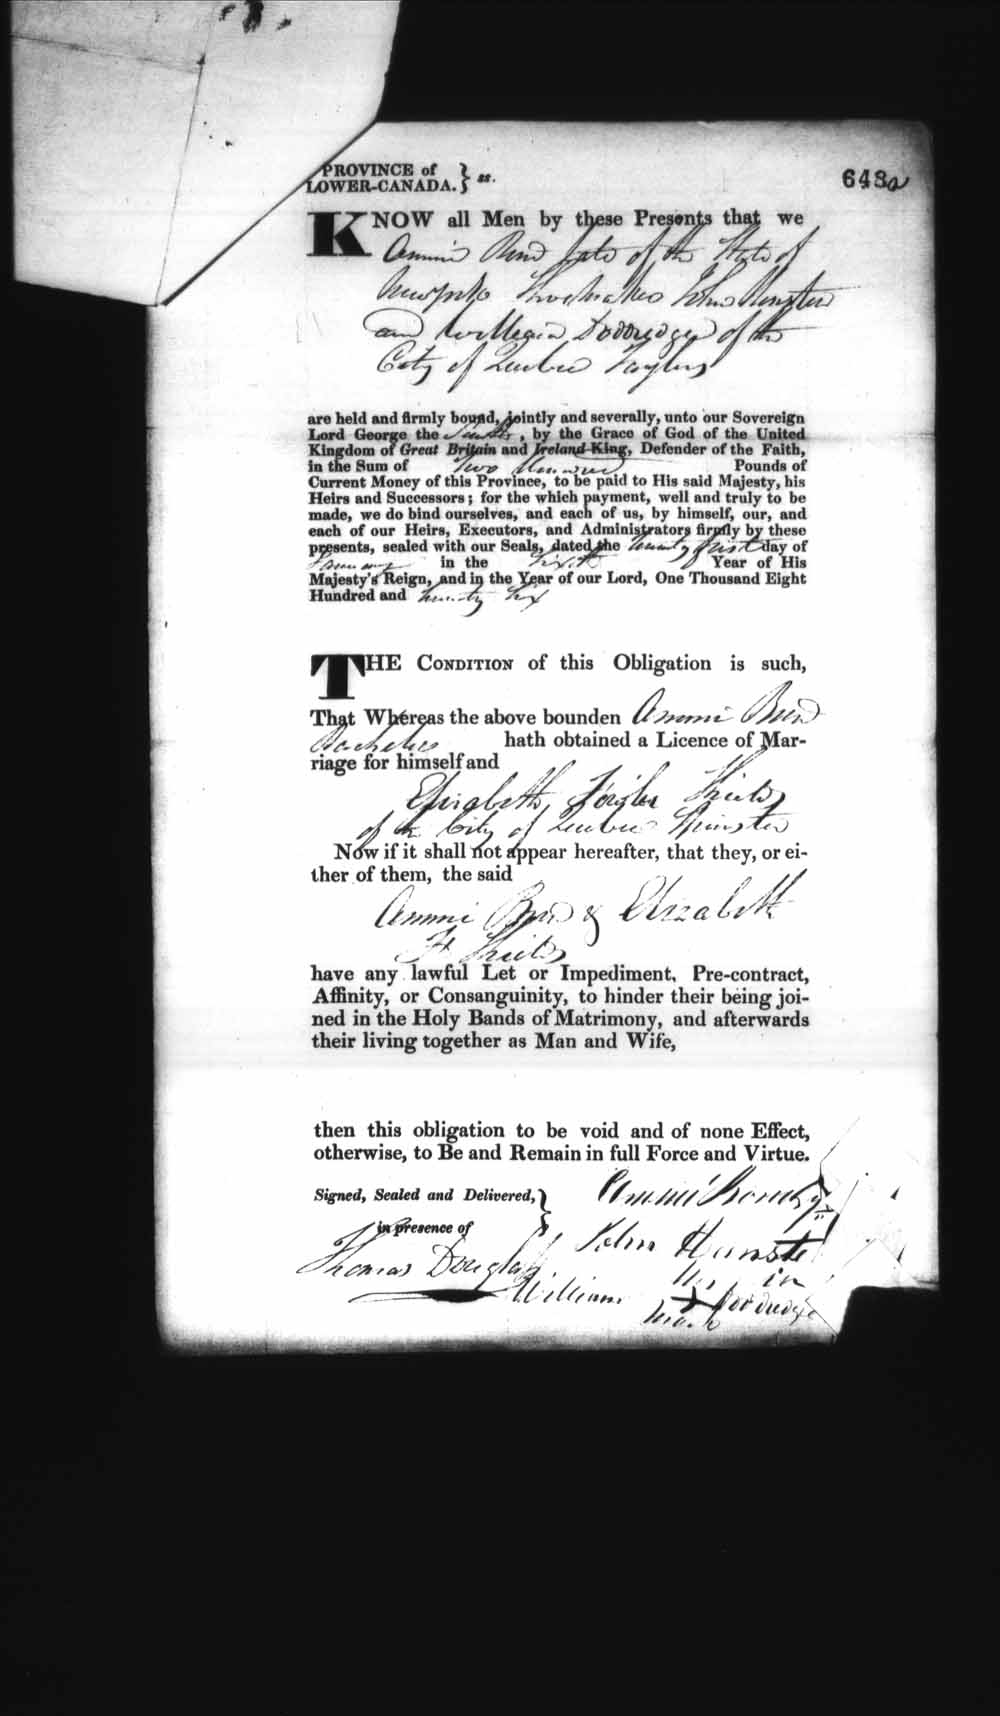 PROVINCE of
LOWER-CANADA. } ss.
643a
KNOW all Men by these Presents that we
Ammi late of the State of
New York Shoemaker John
and William Doddridge of the
City of Quebec Taylors
are held and firmly bound, jointly and severally, unto our Sovereign
Lord George the Fourth, by the Grace of God of the United
Kingdom of Great Britain and Ireland King, Defender of the Faith,
in the Sum of Two Hundred Pounds of
Current Money of this Province, to be paid to His said Majesty, his
Heirs and Successors; for the which payment, well and truly to be
made, we do bind ourselves, and each of us, by himself, our, and
each of our Heirs, Executors, and Administrators firmly by these
presents, sealed with our Seals, dated the twenty first day of
January in the Sixth Year of His
Majesty's Reign, and in the Year of our Lord, One Thousand Eight
Hundred and twenty Six
THE CONDITION of this Obligation is such,
That Whereas the above bounden Ammi
Bachelor hath obtained a Licence of Mar-
riage for himself and
Elizabeth Shields
of the City of Quebec Spinster
Now if it shall not appear hereafter, that they, or ei-
ther of them, the said
Ammi & Elizabeth
F. Shields
have any lawful Let or Impediment, Pre-contract,
Affinity, or Consanguinity, to hinder their being joi-
ned in the Holy Bands of Matrimony, and afterwards
their living together as Man and Wife,
then this obligation to be void and of none Effect,
otherwise, to Be and Remain in full Force and Virtue.
Signed, Sealed and Delivered, }
Ammi
in presence of
John
Thomas Douglas
his
William X Doddridge
mark